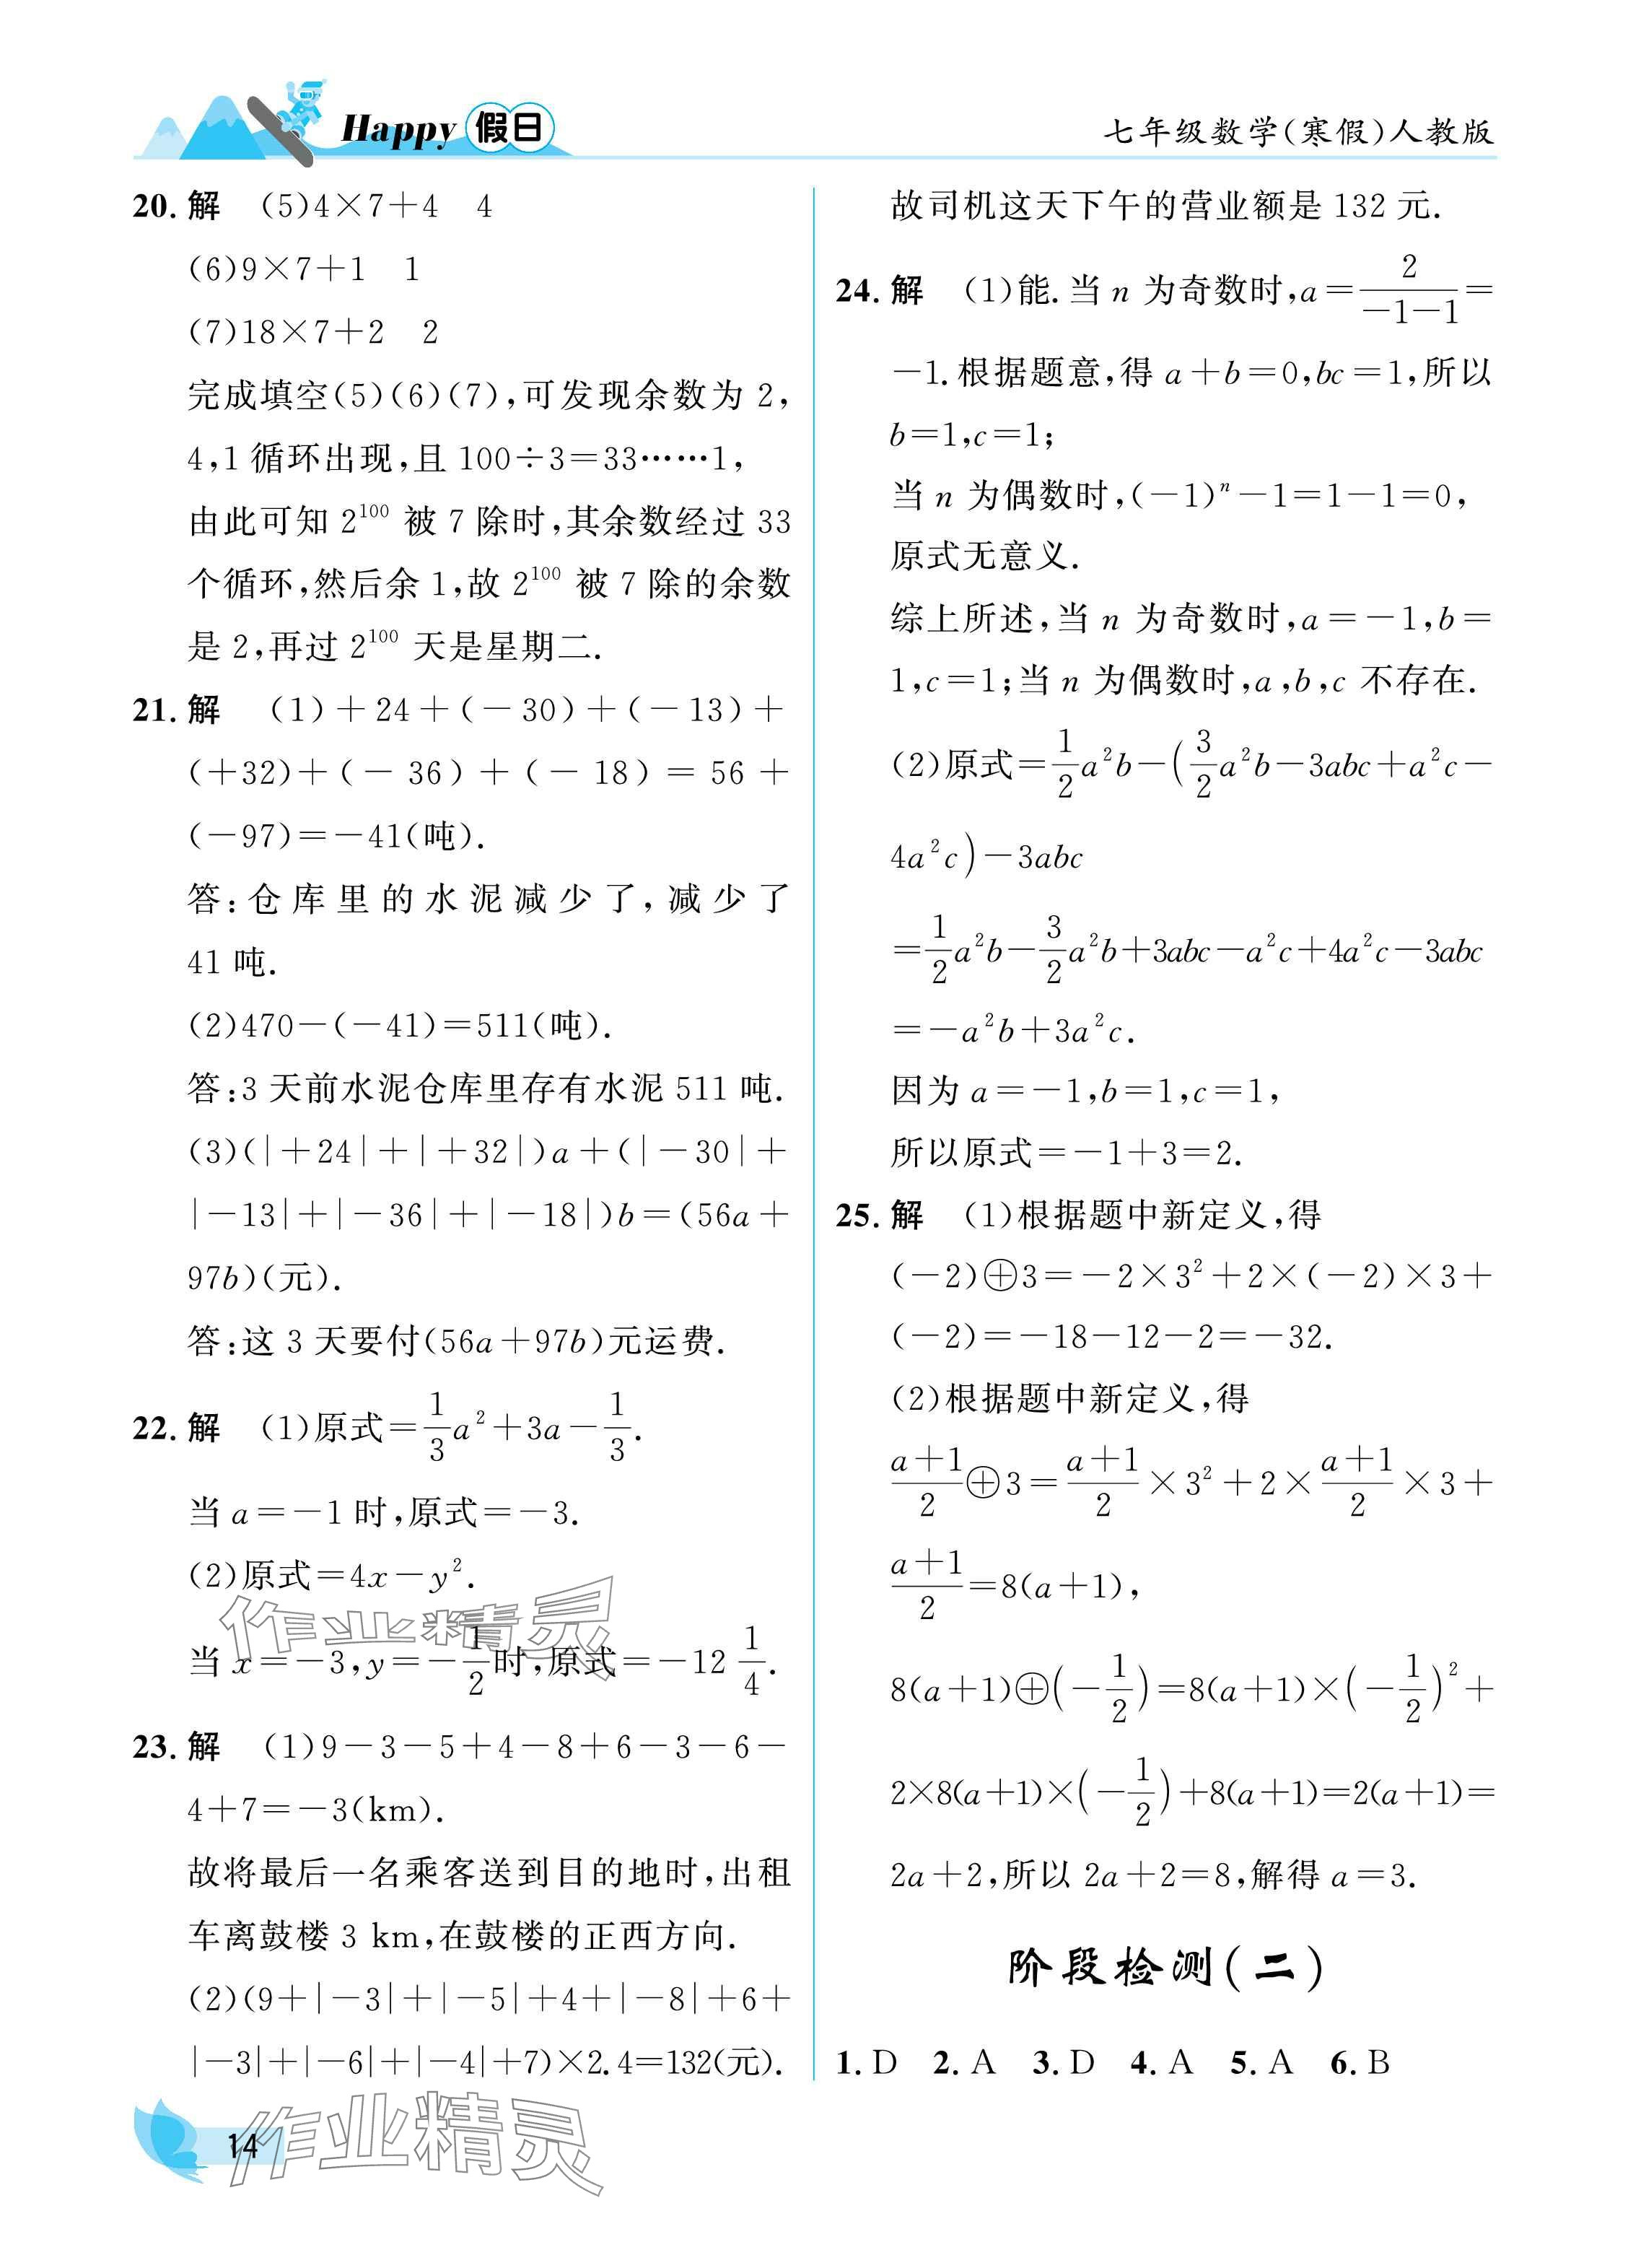 Happy 假日
七年级数学(寒假)人教版
20. 解 (5)4×7+4 4
(6)9×7+1 1
(7)18×7+2 2
完成填空(5)(6)(7),可发现余数为 2,
4,1 循环出现,且 100÷3=33……1,
由此可知 2^100 被 7 除时,其余数经过 33
个循环,然后余 1,故 2^100 被 7 除的余数
是 2,再过 2^100 天是星期二.
21. 解 (1)+24+(-30)+(-13)+
(+32)+(-36)+(-18)=56+
(-97)=-41(吨).
答:仓库里的水泥减少了,减少了
41 吨.
(2)470-(-41)=511(吨).
答:3 天前水泥仓库里存有水泥 511 吨.
(3)(|+24|+|+32|)a+(|-30|+
|-13|+|-36|+|-18|)b=(56a+
97b)(元).
答:这 3 天要付(56a+97b)元运费.
22. 解 (1)原式=1/3 a²+3a-1/3.
当 a=-1 时,原式=-3.
(2)原式=4x-y².
当 x=-3,y=-1/2 时,原式=-12 1/4.
23. 解 (1)9-3-5+4-8+6-3-6-
4+7=-3(km).
故将最后一名乘客送到目的地时,出租
车离鼓楼 3 km,在鼓楼的正西方向.
(2)(9+|-3|+|-5|+4+|-8|+6+
|-3|+|-6|+|-4|+7)×2.4=132(元).
故司机这天下午的营业额是 132 元.
24. 解 (1)能.当 n 为奇数时,a=2/(-1-1)=
-1.根据题意,得 a+b=0,bc=1,所以
b=1,c=1;
当 n 为偶数时,(-1)ⁿ-1=1-1=0,
原式无意义.
综上所述,当 n 为奇数时,a=-1,b=
1,c=1;当 n 为偶数时,a,b,c 不存在.
(2)原式=1/2 a²b-(3/2 a²b-3abc+a²c-
4a²c)-3abc
=1/2 a²b-3/2 a²b+3abc-a²c+4a²c-3abc
=-a²b+3a²c.
因为 a=-1,b=1,c=1,
所以原式=-1+3=2.
25. 解 (1)根据题中新定义,得
(-2)⊕3=-2×3²+2×(-2)×3+
(-2)=-18-12-2=-32.
(2)根据题中新定义,得
(a+1)/2⊕3=(a+1)/2×3²+2×(a+1)/2×3+
(a+1)/2=8(a+1),
8(a+1)⊕(-1/2)=8(a+1)×(-1/2)²+
2×8(a+1)×(-1/2)+8(a+1)=2(a+1)=
2a+2,所以 2a+2=8,解得 a=3.
阶段检测(二)
1. D 2. A 3. D 4. A 5. A 6. B
14
作业精灵
作业精灵